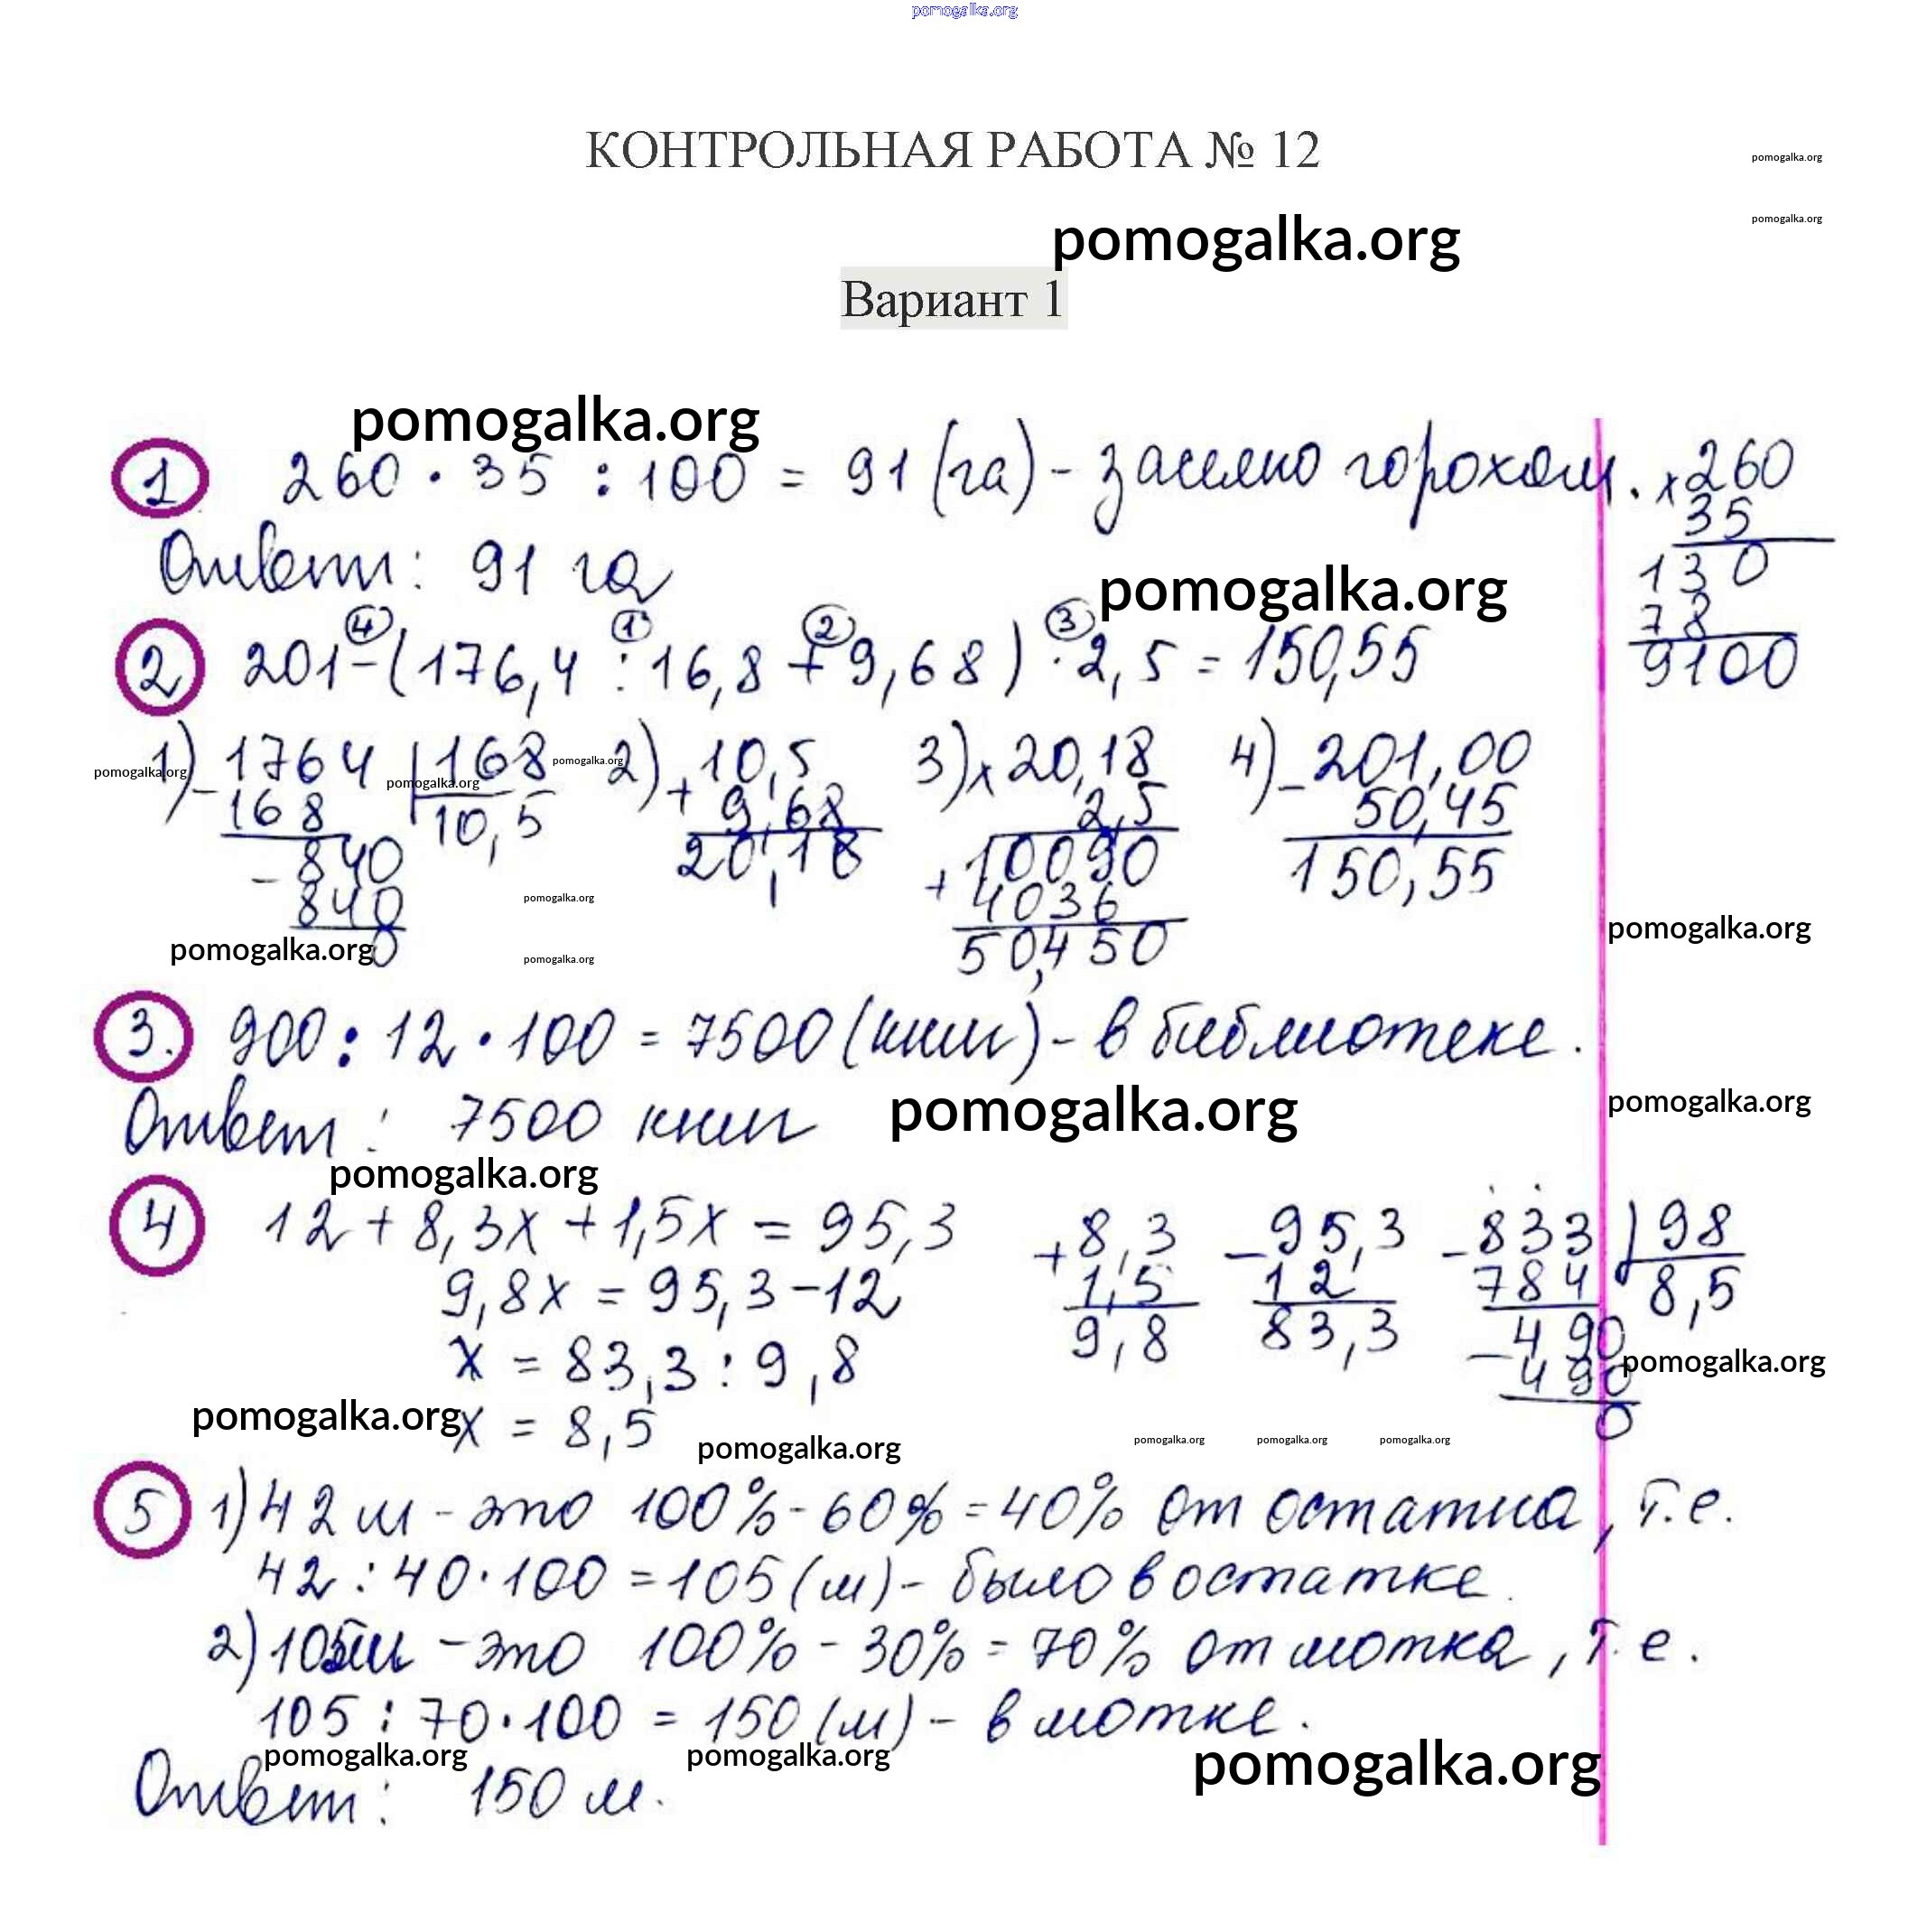 pomogalka.org
КОНТРОЛЬНАЯ РАБОТА № 12
pomogalka.org
pomogalka.org
pomogalka.org
Вариант 1
pomogalka.org
1 260 · 35 : 100 = 91 (га) - засеяно горохом. × 260
35
130
78
9100
Ответ: 91 га
pomogalka.org
④ ① ② ③
2 201 - (176,4 : 16,8 + 9,68) · 2,5 = 150,55
1) - 1764 | 168
168 10,5
- 840
840
0
2) + 10,5
9,68
20,18
3) × 20,18
2,5
+ 10090
4036
50,450
4) - 201,00
50,45
150,55
pomogalka.org
pomogalka.org
pomogalka.org
pomogalka.org
pomogalka.org
pomogalka.org
pomogalka.org
3. 900 : 12 · 100 = 7500 (книг) - в библиотеке.
Ответ: 7500 книг
pomogalka.org
pomogalka.org
pomogalka.org
4 12 + 8,3x + 1,5x = 95,3
9,8x = 95,3 - 12
x = 83,3 : 9,8
x = 8,5
+ 8,3
1,5
9,8
- 95,3
12
83,3
- 833 | 98
784 8,5
- 490
490
0
pomogalka.org
pomogalka.org
pomogalka.org
pomogalka.org
pomogalka.org
pomogalka.org
5 1) 42 м - это 100% - 60% = 40% от остатка, т.е.
42 : 40 · 100 = 105 (м) - было в остатке.
2) 105 м - это 100% - 30% = 70% от мотка, т.е.
105 : 70 · 100 = 150 (м) - в мотке.
pomogalka.org
pomogalka.org
pomogalka.org
Ответ: 150 м.